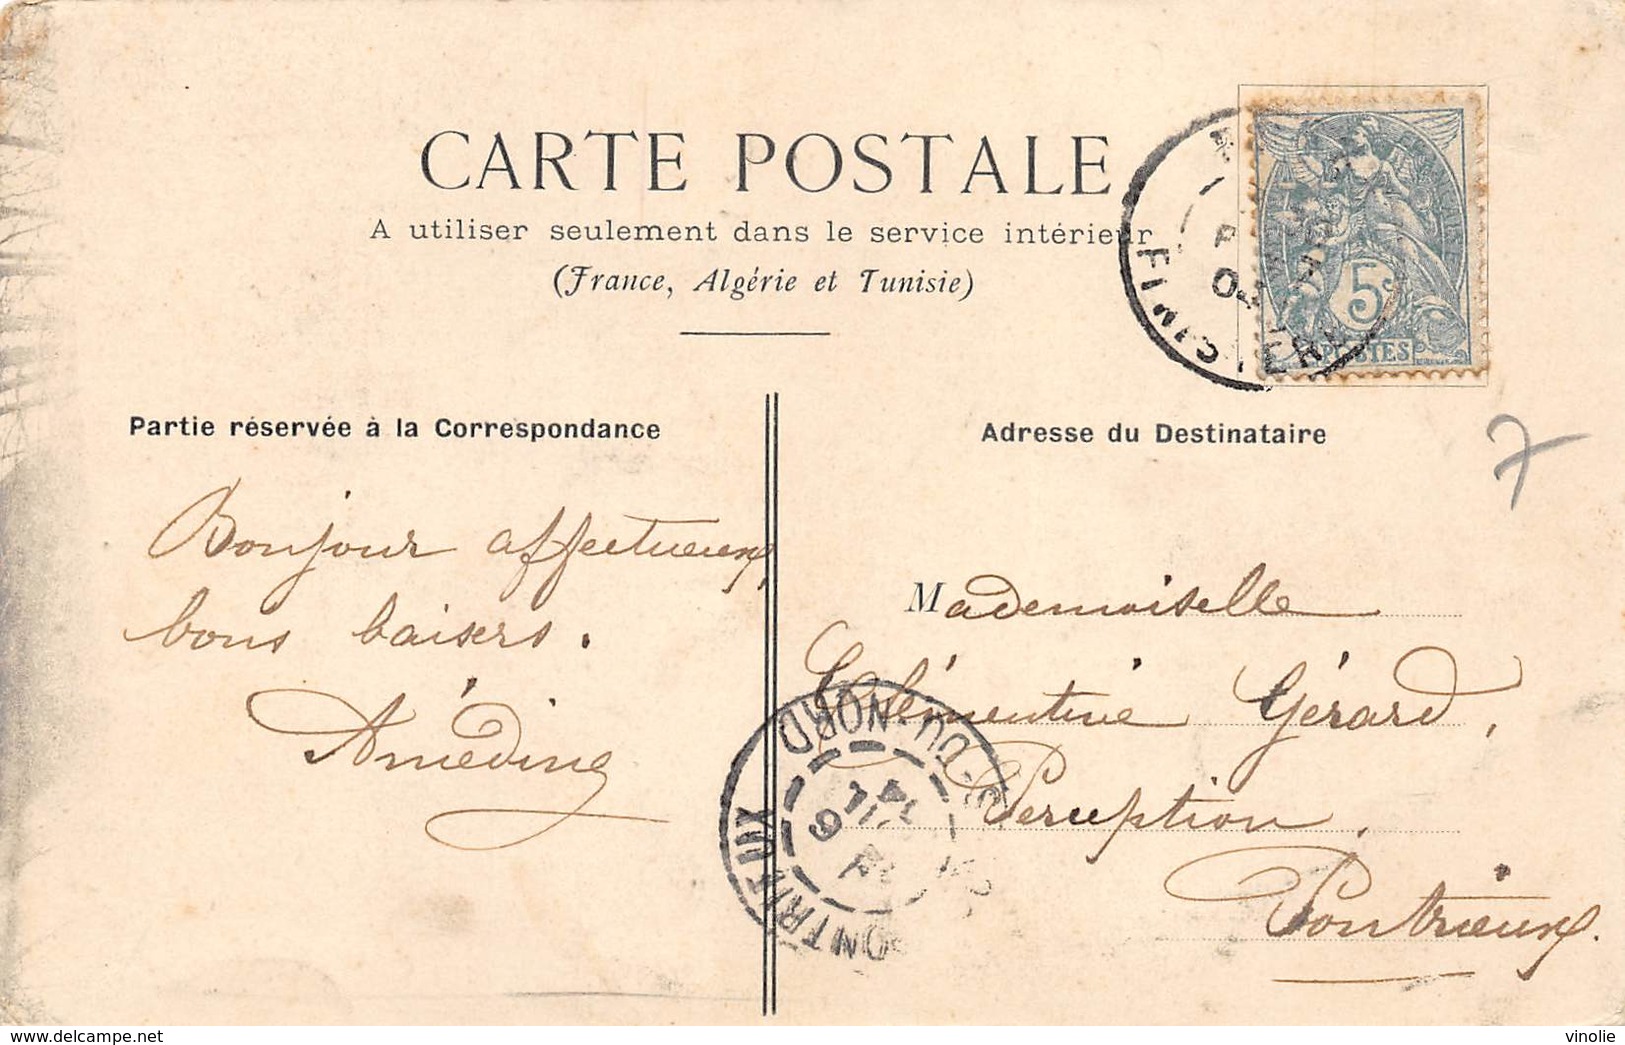 CARTE POSTALE
A utiliser seulement dans le service intérieur
(France, Algérie et Tunisie)
5
POSTES
04
FI
Partie réservée à la Correspondance
Adresse du Destinataire
7
Bonjour affectueux,
bons baisers.
Mademoiselle
Clémentine Gérard,
Perception,
Pontrieux.
PONTRIEUX
DU-NORD
www.delcampe.net
vinolie